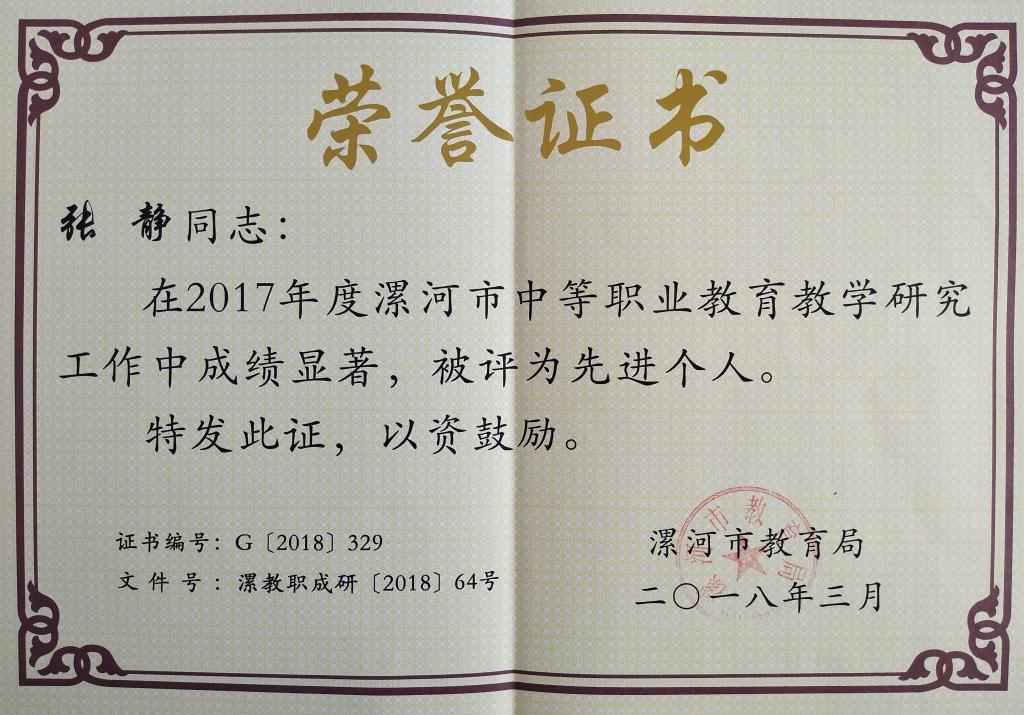 荣誉证书
张 静同志：
在2017年度漯河市中等职业教育教学研究
工作中成绩显著，被评为先进个人。
特发此证，以资鼓励。
证书编号：G〔2018〕329
文件号：漯教职成研〔2018〕64号
漯河市教育局
漯河市教育局
二〇一八年三月